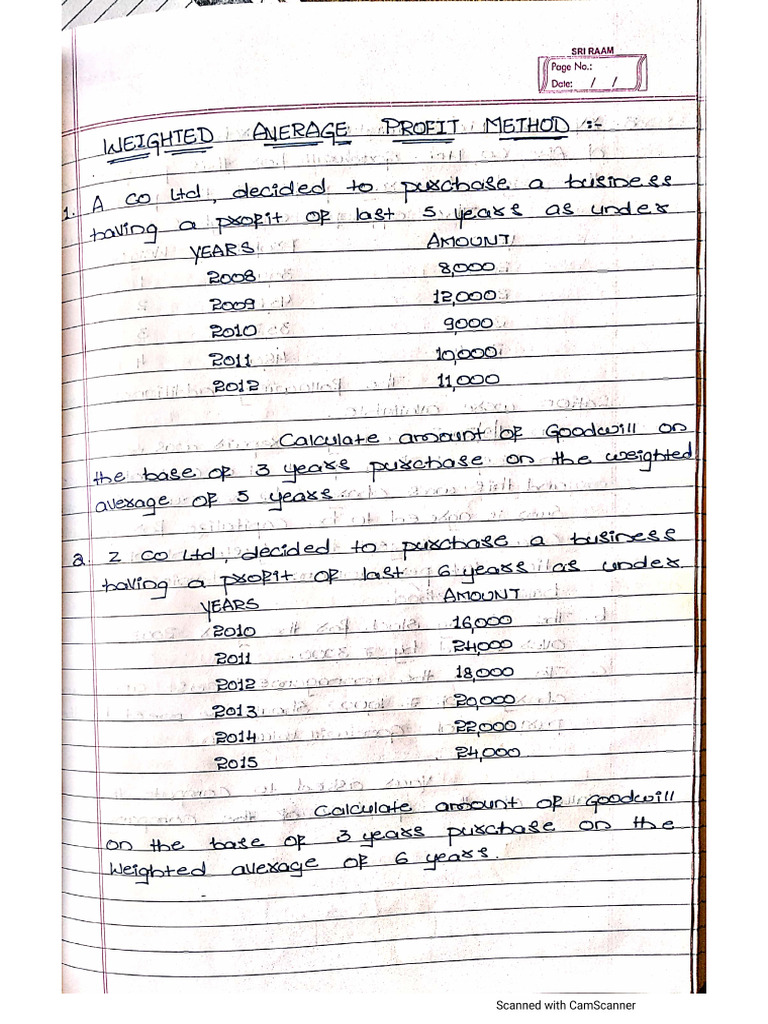 SRI RAAM
Page No.:
Date: / /
WEIGHTED AVERAGE PROFIT METHOD :-
1. A Co Ltd, decided to purchase a business
having a profit of last 5 years as under
YEARS AMOUNT
2008 8,000
2009 12,000
2010 9000
2011 10,000
2012 11,000
Calculate amount of Goodwill on
the base of 3 years purchase on the weighted
average of 5 years
2. Z Co Ltd, decided to purchase a business
having a profit of last 6 years as under
YEARS AMOUNT
2010 16,000
2011 24,000
2012 18,000
2013 20,000
2014 22,000
2015 24,000
Calculate amount of Goodwill
on the base of 3 years purchase on the
Weighted average of 6 years.
Scanned with CamScanner